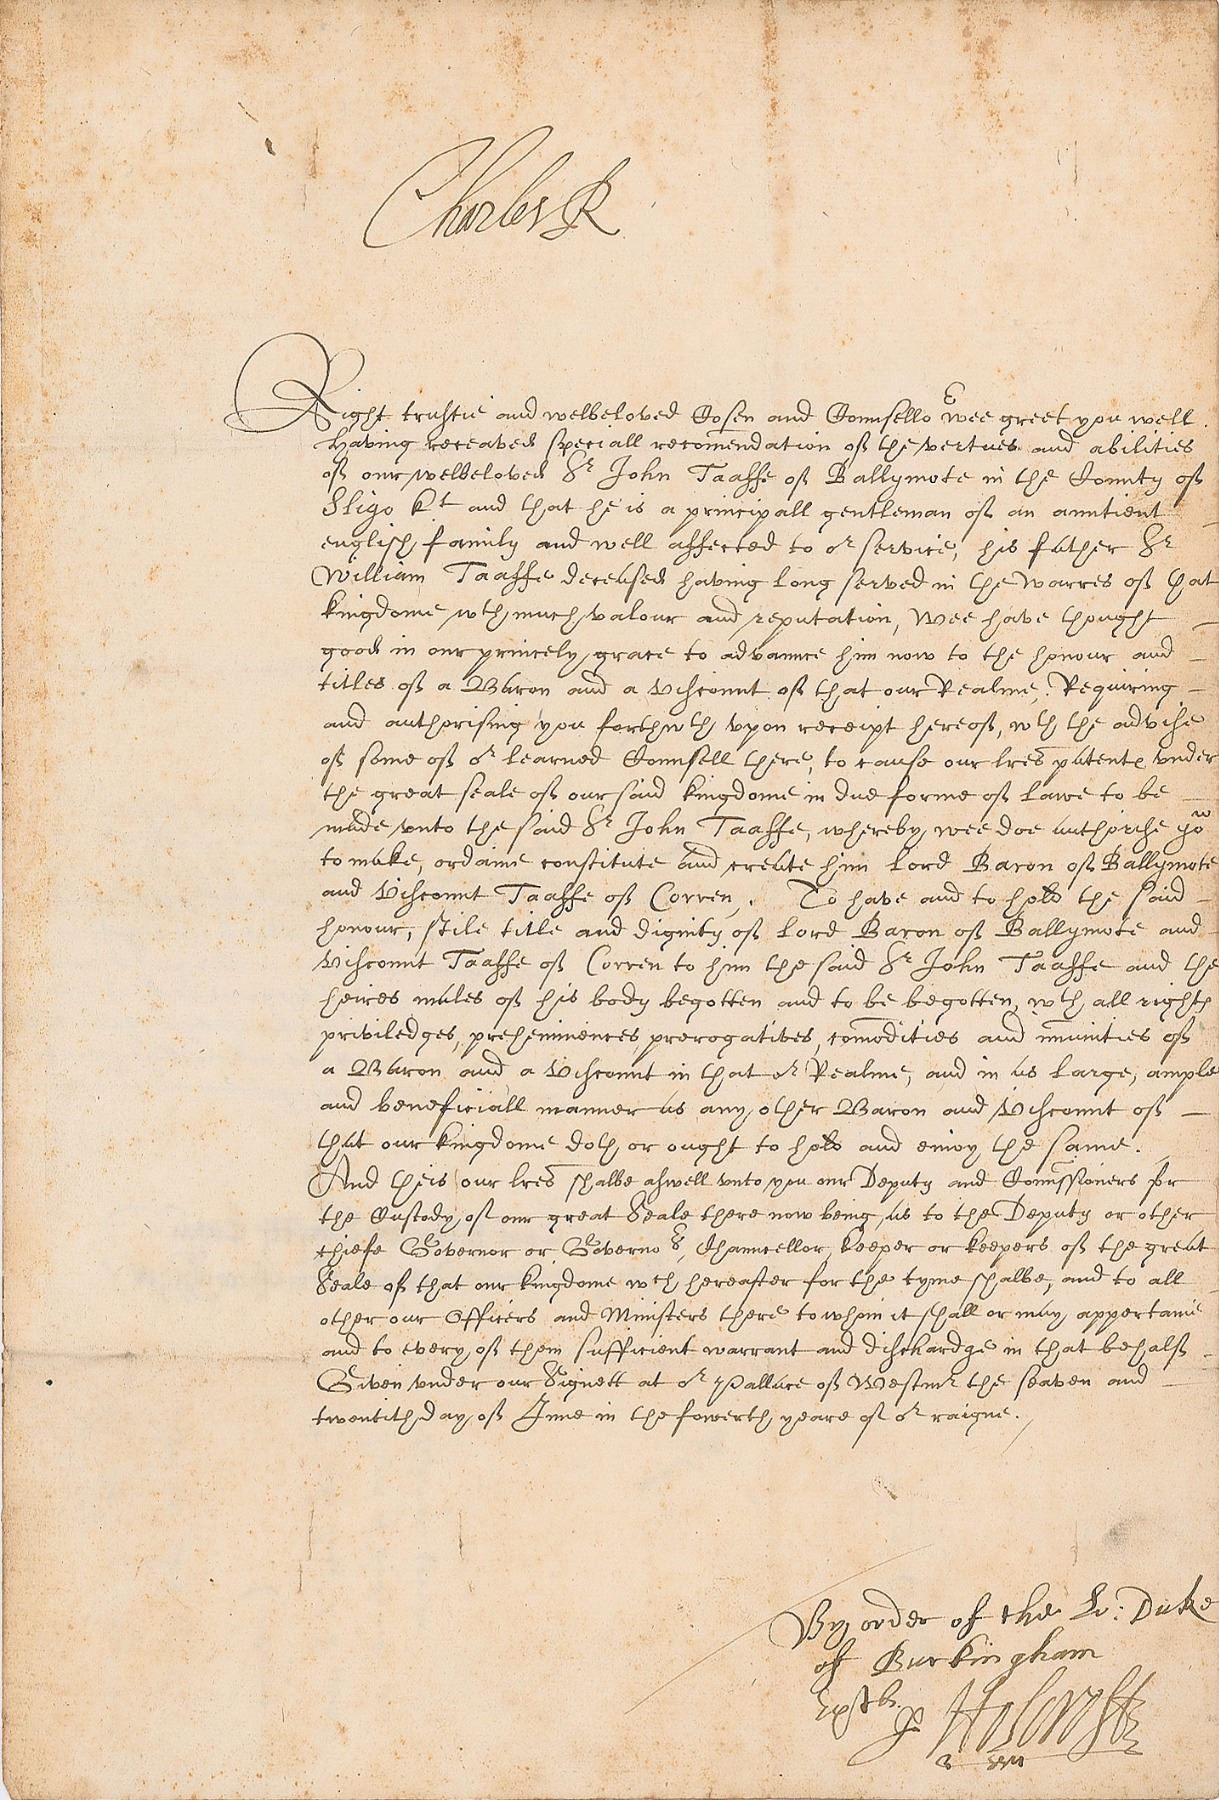 Charles R
Right trustie and welbeloved Cosen and Counsello.r wee greet you well.
Having receaved speciall recomendation of the vertues and abilities
of our welbeloved Sr John Taaffe of Ballymote in the County of
Sligo Kt and that he is a principall gentleman of an auntient
english family and well affected to or service, his father Sr
William Taaffe deceased having long served in the warres of that
kingdome wth much valour and reputation, Wee have thought
good in our princely grace to advaunce him now to the honour and
titles of a Baron and a Viscount of that our Realme, Requiring
and authorising you forthwth vpon receipt hereof, wth the advise
of some of or learned Counsell there, to cause our lres patent vnder
the great seale of our said kingdome in due forme of lawe to be
made vnto the said Sr John Taaffe, whereby wee doe authorise yow
to make, ordaine constitute and create him Lord Baron of Ballymote
and Viscount Taaffe of Corren. To have and to hold the said
honour, stile title and dignity of Lord Baron of Ballymote and
Viscount Taaffe of Corren to him the said Sr John Taaffe and the
heires males of his body begotten and to be begotten, wth all rights
priviledges, preheminences prerogatives, comodities and imunities of
a Baron and a Viscount in that or Realme, and in as large, ample
and beneficiall manner as any other Baron and Viscount of
that our kingdome doth or ought to hold and enioy the same.
And theis our lres shalbe aswell vnto you our Deputy and Comissioners for
the Custody of our great Seale there now being, as to the Deputy or other
chiefe Governor or Governors, Chauncellor, keeper or keepers of the great
Seale of that our kingdome wch hereafter for the tyme shalbe, and to all
other our Officers and Ministers there to whom it shall or may appertaine
and to every of them sufficient warrant and dischardge in that behalf
Given vnder our Signett at or Pallace of Westmr the seaven and
twentith day of June in the fowerth yeare of or raigne.
By order of the Lo: Duke
of Buckingham
Holcroft